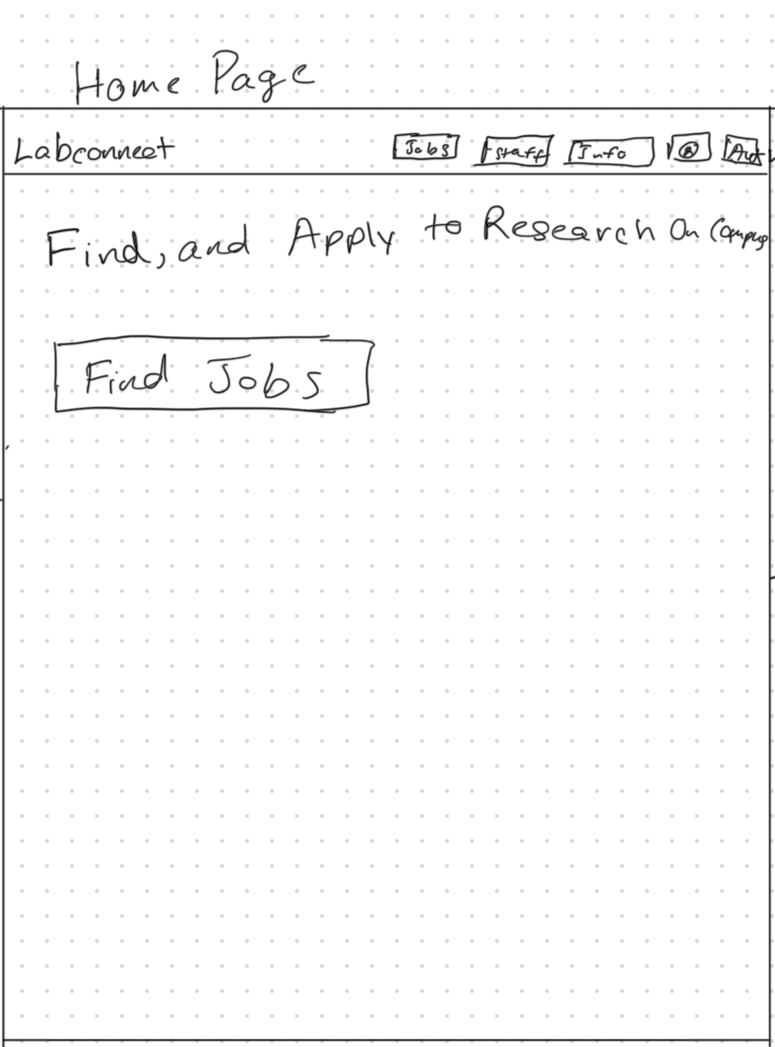 Home Page
Labconnect Jobs Staff Info
Find, and Apply to Research On Campus
Find Jobs